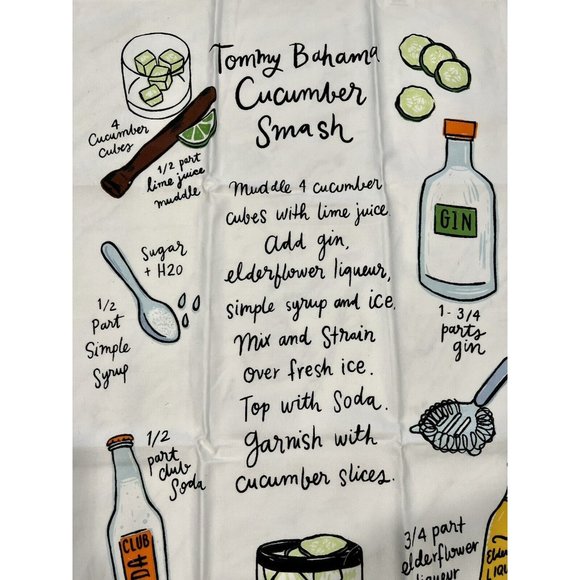 Tommy Bahama
Cucumber
Smash
4
Cucumber
cubes
1/2 part
lime juice
muddle
Muddle 4 cucumber
cubes with lime juice.
Add gin,
elderflower liqueur,
simple syrup and ice.
Mix and Strain
over fresh ice.
Top with Soda.
Garnish with
cucumber slices.
GIN
1-3/4
parts
gin
Sugar
+ H2O
1/2
Part
Simple
Syrup
1/2
part
club
Soda
CLUB
3/4 part
elderflower
liqueur